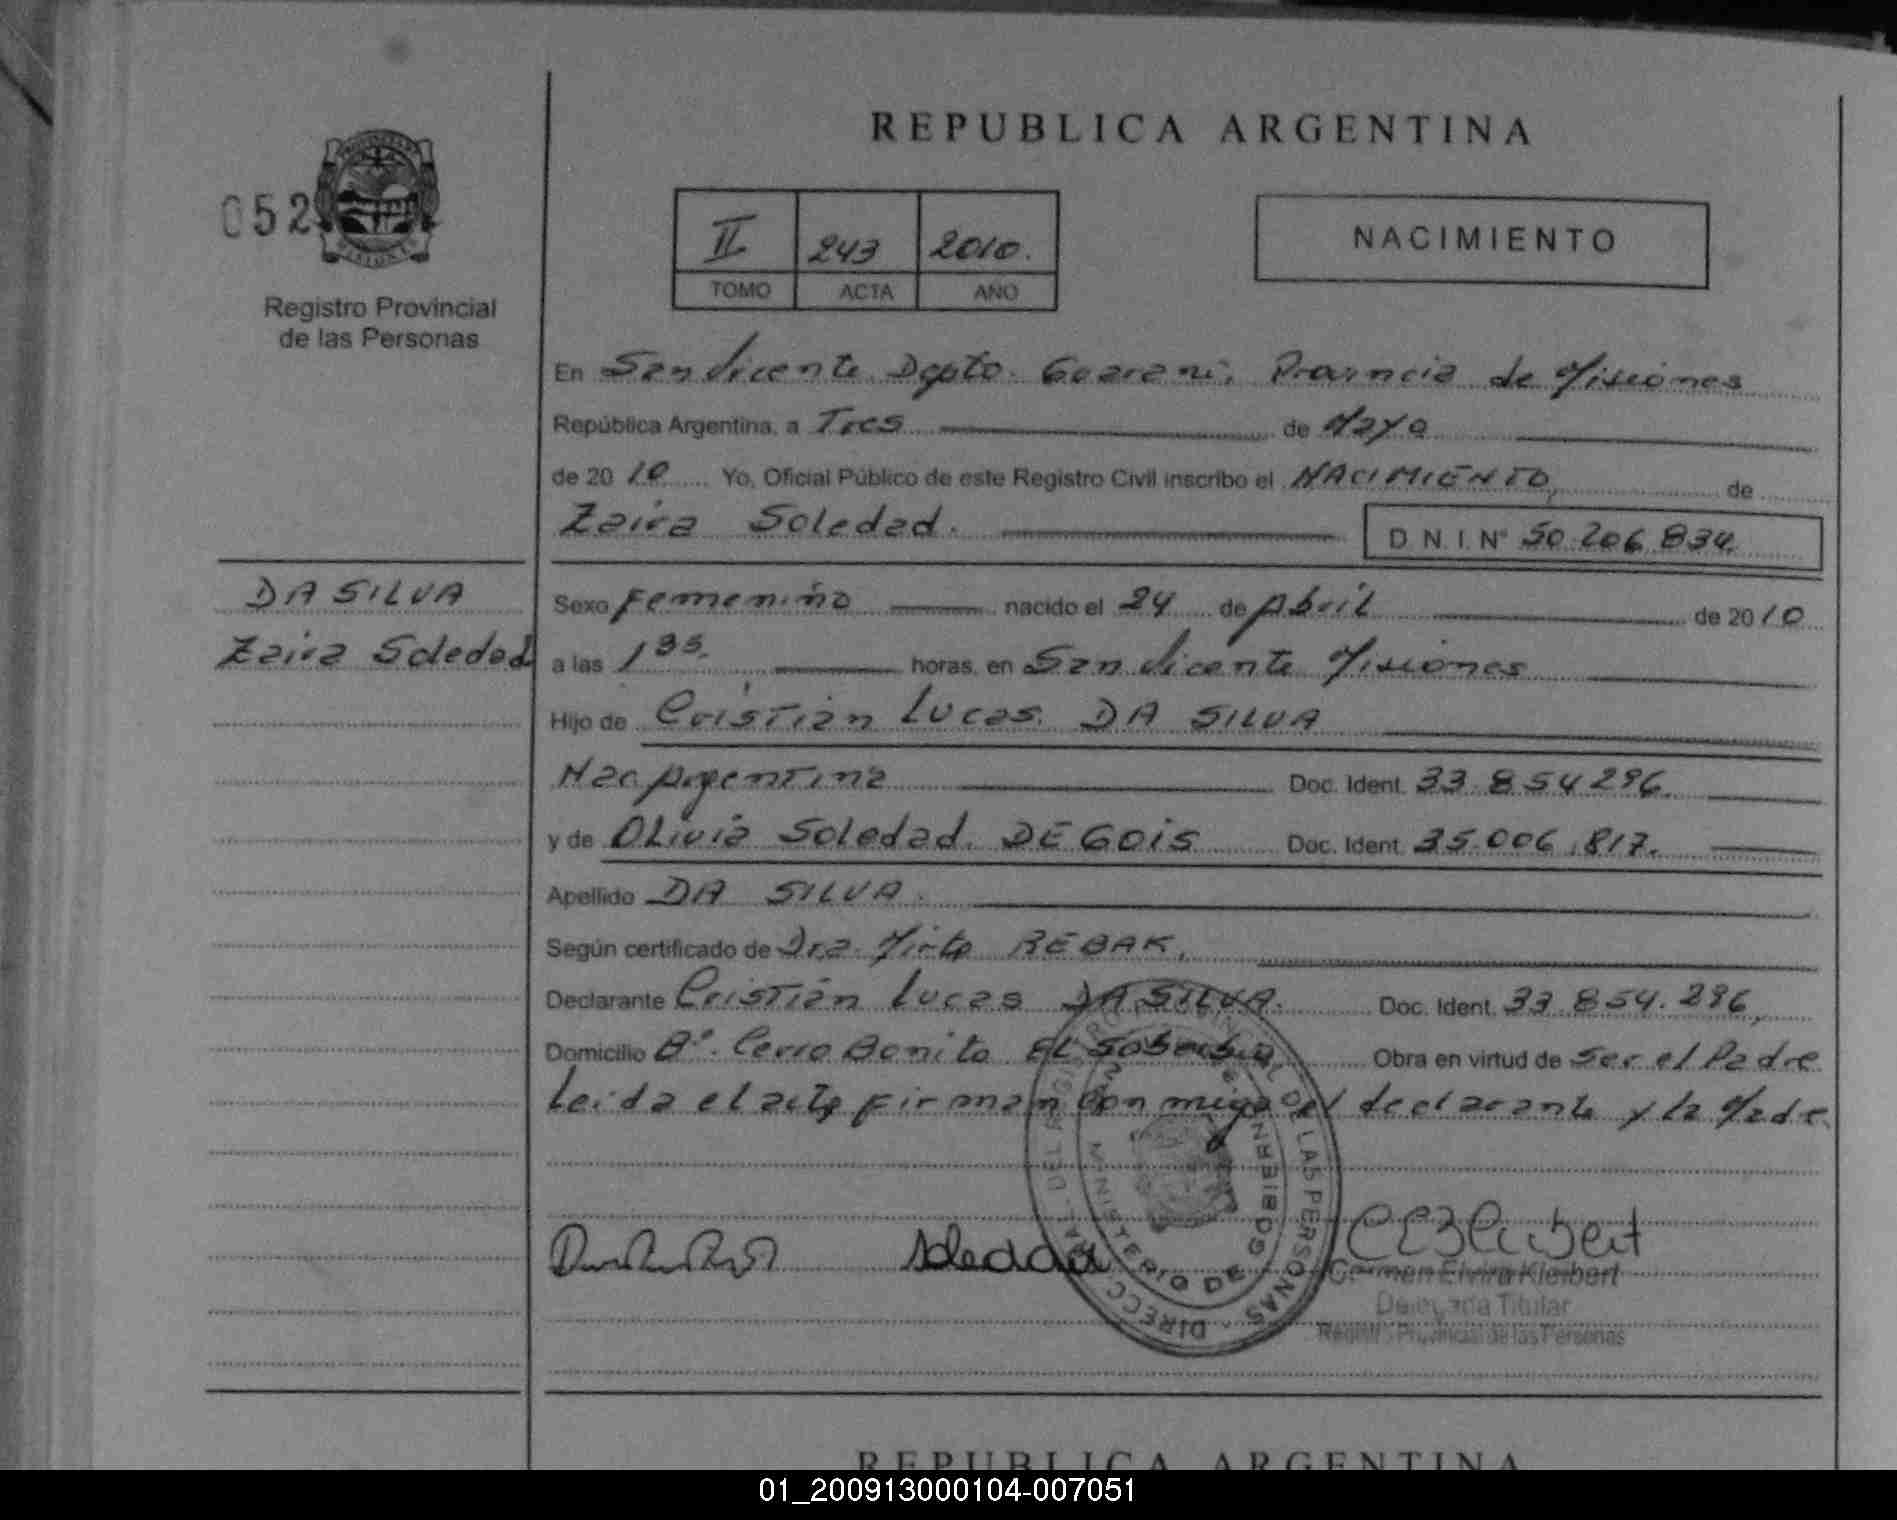 REPUBLICA ARGENTINA
052
II 243 2010.
TOMO ACTA AÑO
NACIMIENTO
Registro Provincial
de las Personas
En San Vicente Dpto. Guarani, Provincia de Misiones
República Argentina, a Tres de Mayo
de 2010 Yo, Oficial Público de este Registro Civil inscribo el NACIMIENTO, de
Zaira Soledad. D.N.I. N° 50.206.834
DA SILVA
Zaira Soledad
Sexo Femenino nacido el 24 de Abril de 2010
a las 1 35. horas, en San Vicente Misiones
Hijo de Cristian Lucas. DA SILVA
Nac Argentina Doc. Ident. 33.854.296.
y de OLivia Soledad. DE GOIS Doc. Ident. 35.006.817.
Apellido DA SILVA.
Según certificado de Dra. Mirta REBAK,
Declarante Cristian Lucas DA SILVA. Doc. Ident. 33.854.296,
Domicilio B°. Cerro Bonito EL Soberbio Obra en virtud de Ser el Padre
Leida el acta firman con migo el declarante y la Madre.
Soledad
DIRECC. GRAL. DEL REGISTRO PROVINCIAL DE LAS PERSONAS
MINISTERIO DE GOBIERNO
Carmen Elvira Kleibert
Delegada Titular
Registro Provincial de las Personas
REPUBLICA ARGENTINA
01_200913000104-007051